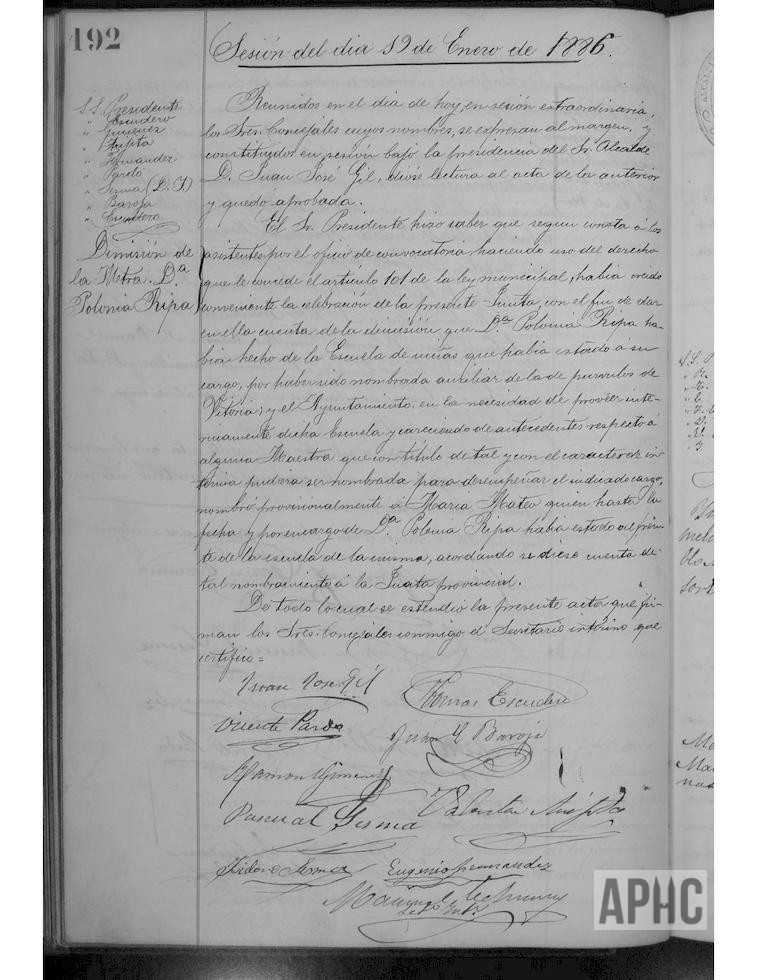 192
Sesión del dia 19 de Enero de 1886.
S.S. Presidente
" Escudero
" Gimenez
" Azpita
" Fernandez
" Pardo
" Serma (D. I.)
" Baroja
" Escudero
Dimisión de
la Mtra. D.ª
Polonia Ripa
Reunidos en el dia de hoy, en sesión extraordinaria,
los Sres. Concejales cuyos nombres, se expresan al margen, y
constituidos en sesión bajo la presidencia del Sr. Alcalde
D. Juan José Gil, dióse lectura al acta de la anterior
y quedó aprobada.
El Sr. Presidente hizo saber que segun consta á los
asistentes por el oficio de convocatoria, haciendo uso del derecho
que le concede el articulo 101 de la ley municipal, habia creido
conveniente la celebración de la presente Junta, con el fin de dar
en ella cuenta de la dimisión que D.ª Polonia Ripa ha-
bia hecho de la Escuela de niñas que habia estado á su
cargo, por haber sido nombrada auxiliar de la de parvulos de
Vitoria; y el Ayuntamiento, en la necesidad de proveer inte-
rinamente dicha Escuela y careciendo de antecedentes respecto á
alguna Maestra que con titulo de tal y con el caracter de in-
terina pudiera ser nombrada para desempeñar el indicado cargo,
nombró provisionalmente á Maria Mateo quien hasta la
fecha y por encargo de D.ª Polonia Ripa habia estado al fren-
te de la escuela de la misma, acordando se diese cuenta de
tal nombramiento á la Junta provincial.
De todo lo cual se estendió la presente acta que fir-
man los Sres. Concejales conmigo el Secretario interino que
certifico=
Juan José Gil
Tomas Escudero
Vicente Pardo
Juan G Baroja
Ramon Gimenez
Pascual Serma
Valentin
Isidoro Serma
Eugenio Fernandez
Sect. Int.
APHC